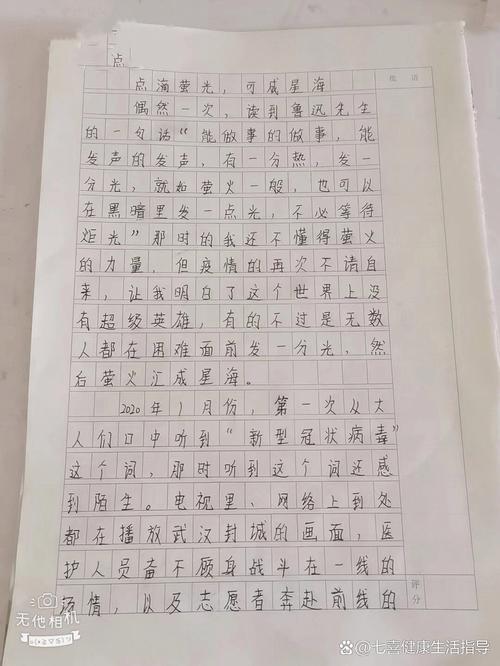 点
批 语
点滴萤光，可成星海
偶然一次，读到鲁迅先生
的一句话“能做事的做事，能
发声的发声，有一分热，发一
分光，就如萤火一般，也可以
在黑暗里发一点光，不必等待
炬光”那时的我还不懂得萤火
的力量，但疫情的再次不请自
来，让我明白了这个世界上没
有超级英雄，有的不过是无数
人都在困难面前发一分光，然
后萤火汇成星海。
2020年1月份，第一次从大
人们口中听到“新型冠状病毒”
这个词，那时听到这个词还感
到陌生。电视里、网络上到处
都在播放武汉封城的画面，医
护人员奋不顾身战斗在一线的
场情，以及志愿者奔赴前线的
评分
无他相机
@七喜健康生活指导